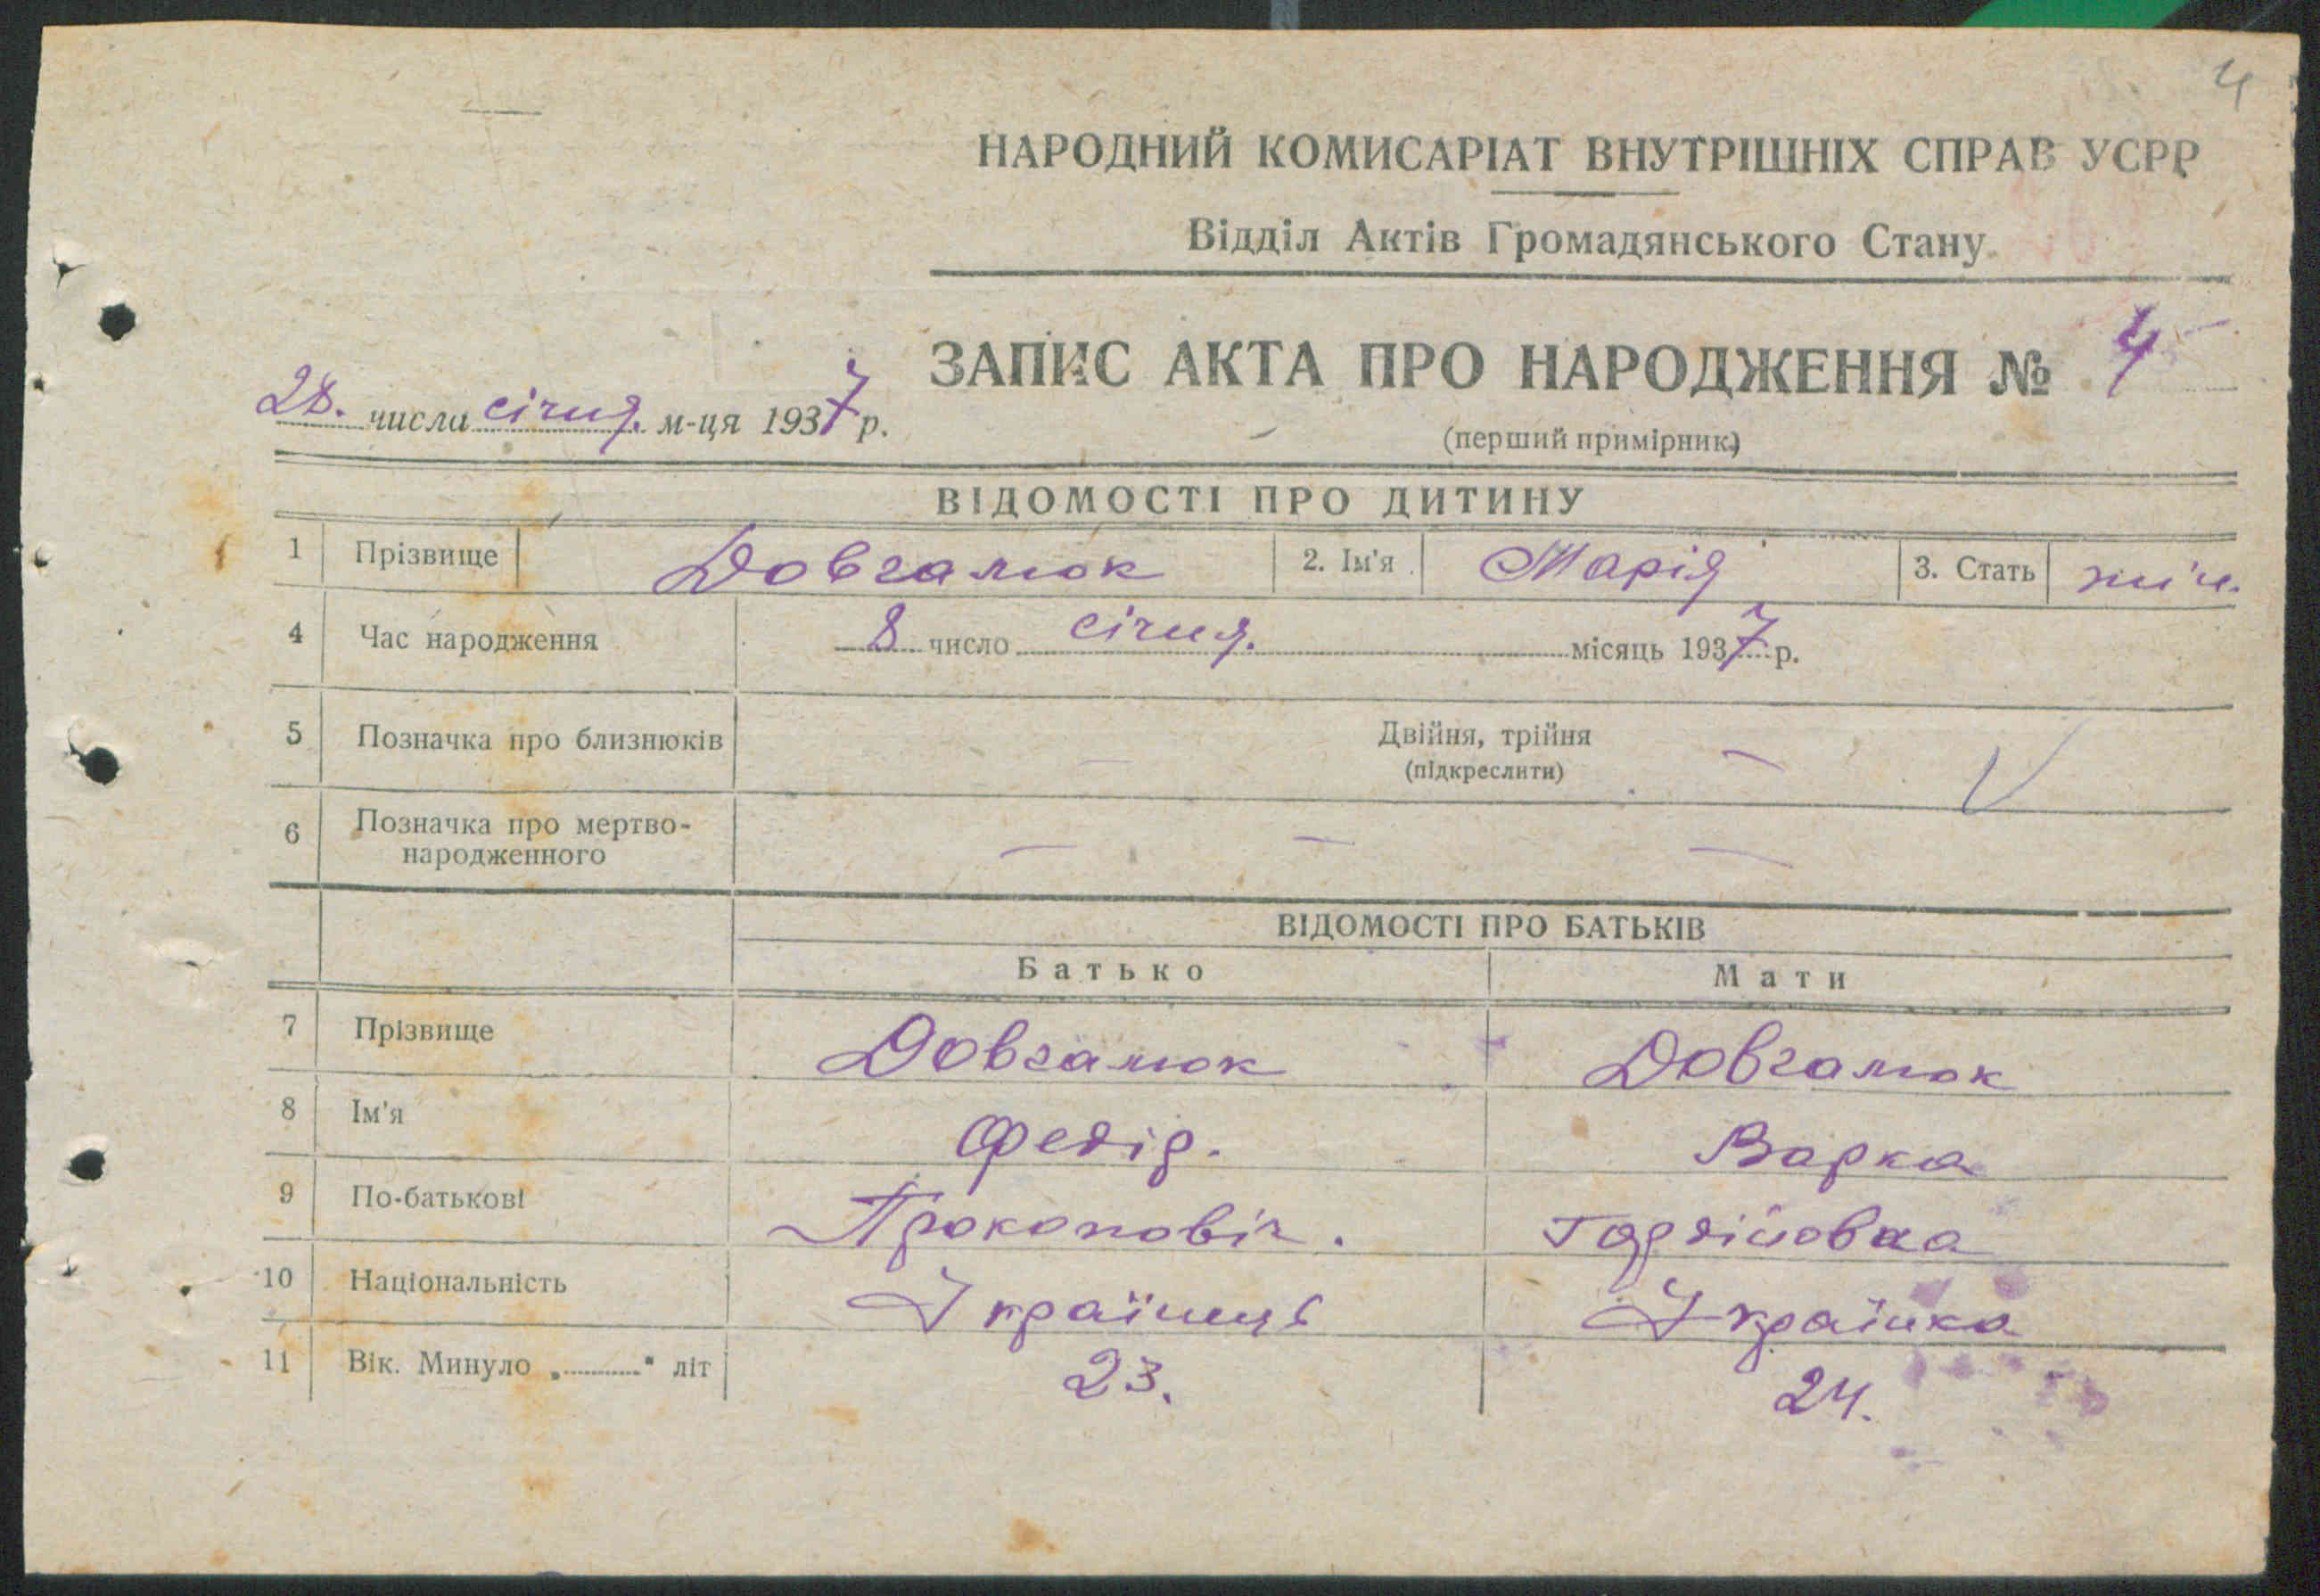 4
НАРОДНИЙ КОМИСАРІАТ ВНУТРІШНІХ СПРАВ УСРР
Відділ Актів Громадянського Стану
ЗАПИС АКТА ПРО НАРОДЖЕННЯ № 4
28. числа січня. м-ця 1937 р.
(перший примірник)
ВІДОМОСТІ ПРО ДИТИНУ
1 Прізвище Довгалюк 2. Ім'я Марія 3. Стать жін.
4 Час народження 8 число січня. місяць 1937 р.
5 Позначка про близнюків Двійня, трійня —
(підкреслити)
6 Позначка про мертво-
народженного — — —
ВІДОМОСТІ ПРО БАТЬКІВ
Батько Мати
7 Прізвище Довгалюк Довгалюк
8 Ім'я Федір. Варка
9 По-батькові Прокоповіч. Гордійовна
10 Національність Українець Українка
11 Вік. Минуло „ " літ 23. 24.